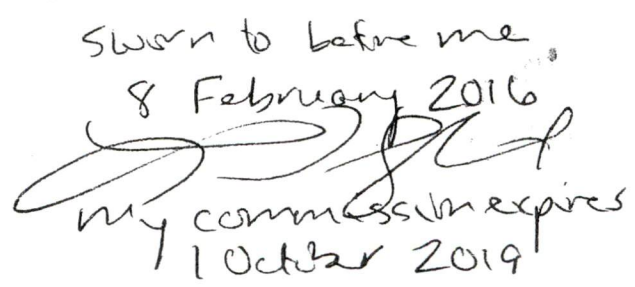 Sworn to before me
8 February 2016
My commission expires
1 October 2019